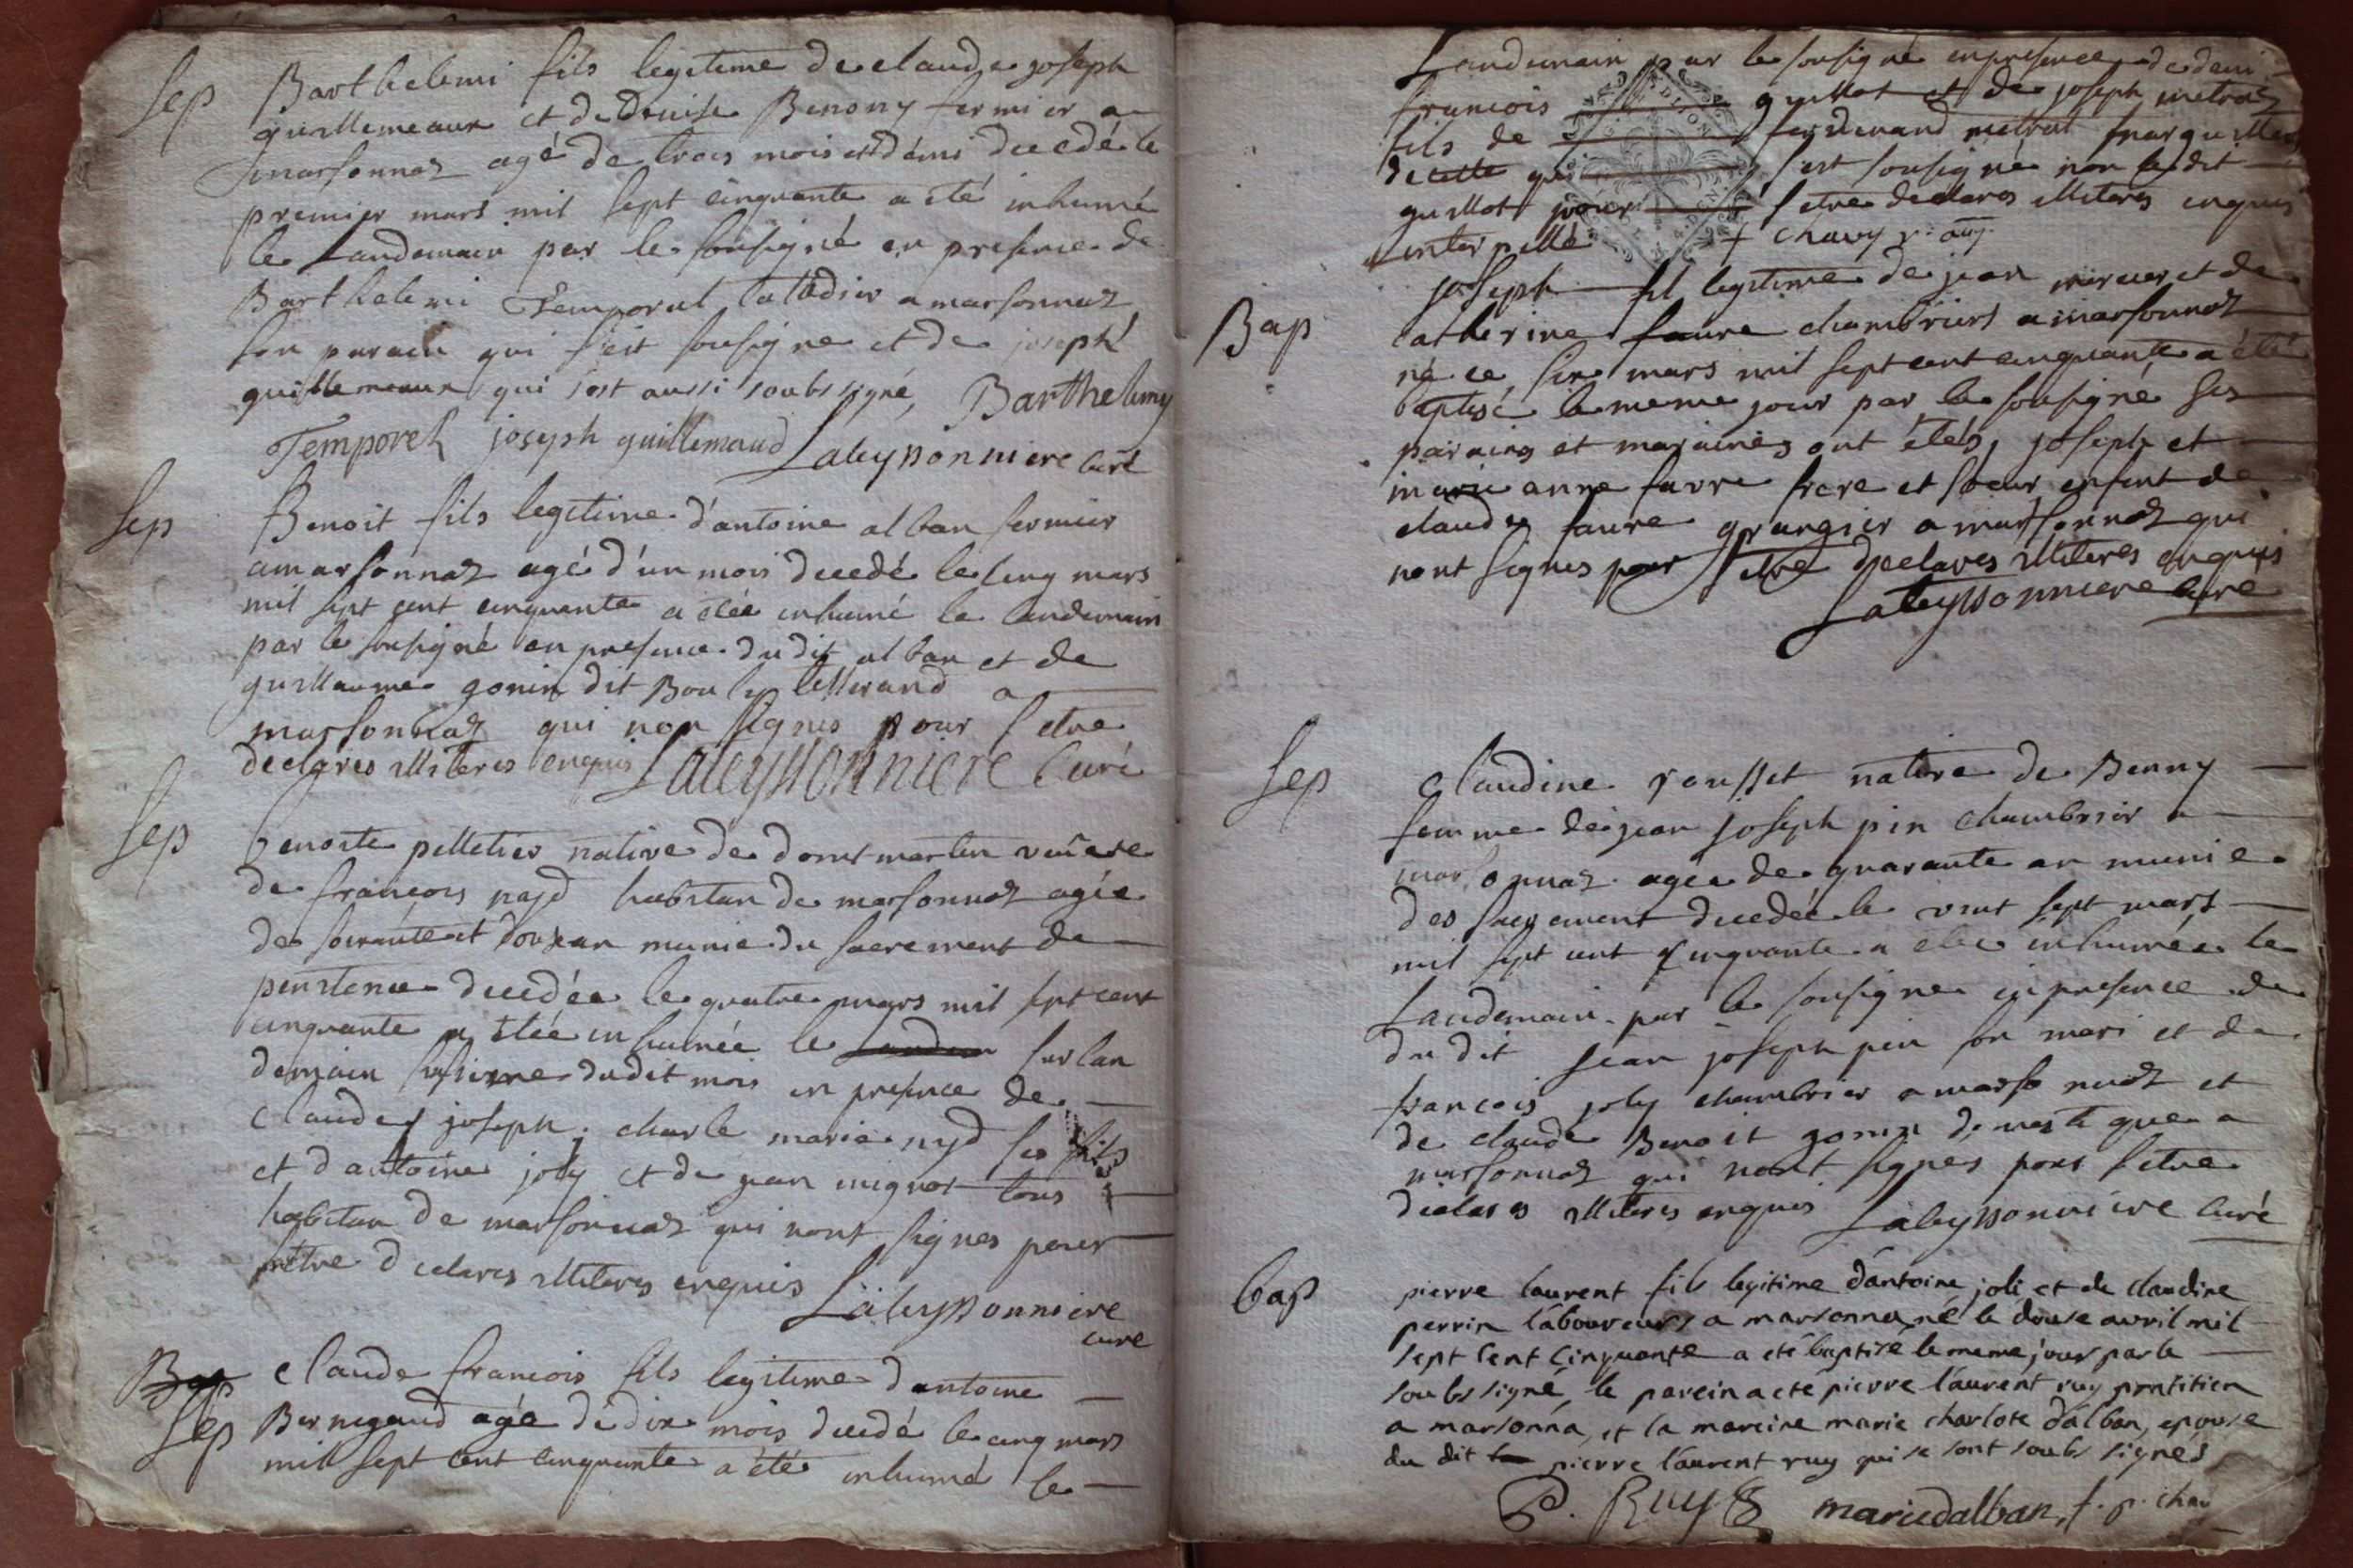 Sep Barthelemi fils legitime de claude joseph
guillemeaux et de Denise Benony fermier a
marsonnaz agé de trois mois et démi decedé le
premier mars mil sept cinquante a eté inhumé
le landemain par le sousigné en presence de
Barthelemi Temporal a marsonnaz
son parain qui s'est sousigne et de joseph
guillemeaux qui s'est aussi soubsigné, Barthelemy
Temporel joseph guillemaud Lateyssonniere curé
Sep Benoit fils legitime d'antoine alban fermier
a marsonnaz agé d'un mois decedé le cinq mars
mil sept cent cinquante a etée inhumé le landemain
par le sousigné en presence du dit alban et de
guillaume gonin dit Bouly tisserand a
marsonnaz qui non signes pour setre
declares illiteres enquis Lateyssonniere Curé
Sep benoite pelletier native de dommartin veuve
de francois nayd habitan de marsonnaz agée
de soixante et douze an munie du sacrement de
penitence decedée le quatre mars mil sept cent
cinquante a etée inhumée le landem surlan
demain sixieme dudit mois en presence de
claude joseph, charle marie nyd ses fils
et d'antoine joly et de jean mignot tous
habitan de marsonnaz qui nont signes pour
n'etre declares illiteres enquis Lateyssonniere
curé
Bap claude francois fils legitime d'antoine
Sep Bernigaud agé de dix mois decedé le cinq mars
mil sept cent cinquante a été inhumé le
landemain par le sousigné en presence de deni
francois guillot et de joseph metral
fils de ferdinand metral marguillier
de cette qui s'est sousigné non ledit
guillot pour setre declares illiteres enquis
interpellé + chavy v. aug.
Bap joseph fil legitime de jean mercier et de
catherine faure chambriers a marsonnaz
né ce six mars mil sept cent cinquante a été
baptisé le meme jour par le sousigné ses
parains et maraines ont étés, joseph et
marie anne favre frere et soeur enfent de
claude faure grangier a marsonnaz qui
nont signes pour setre declares illiteres enquis
Lateyssonniere curé
Sep claudine rousset native de Benny
femme de jean joseph pin chambrier a
marsonnaz agée de quarante an munie
des sacrement decedée le vint sept mars
mil sept cent cinquante a etée inhumée le
landemain par le sousigne en presence de
du dit jean joseph pin son mari et de
francois joly chambrier a marsonnaz et
de claude Benoit gonin domestique a
marsonnaz qui nont signes pour setre
declares illiteres enquis Lateyssonniere curé
bap pierre laurent fils legitime d'antoine joli et de claudine
perrin laboureurs a marsonna né le douse avril mil
sept cent cinquante a eté baptisé le meme jour par le
soubsigné, le parein a eté pierre laurent ruy pratitien
a marsonna, et la mareine marie charlote d'alban, epouse
du dit pierre laurent ruy qui se sont soubs signés
P. Ruy marie dalban, f. p. chav